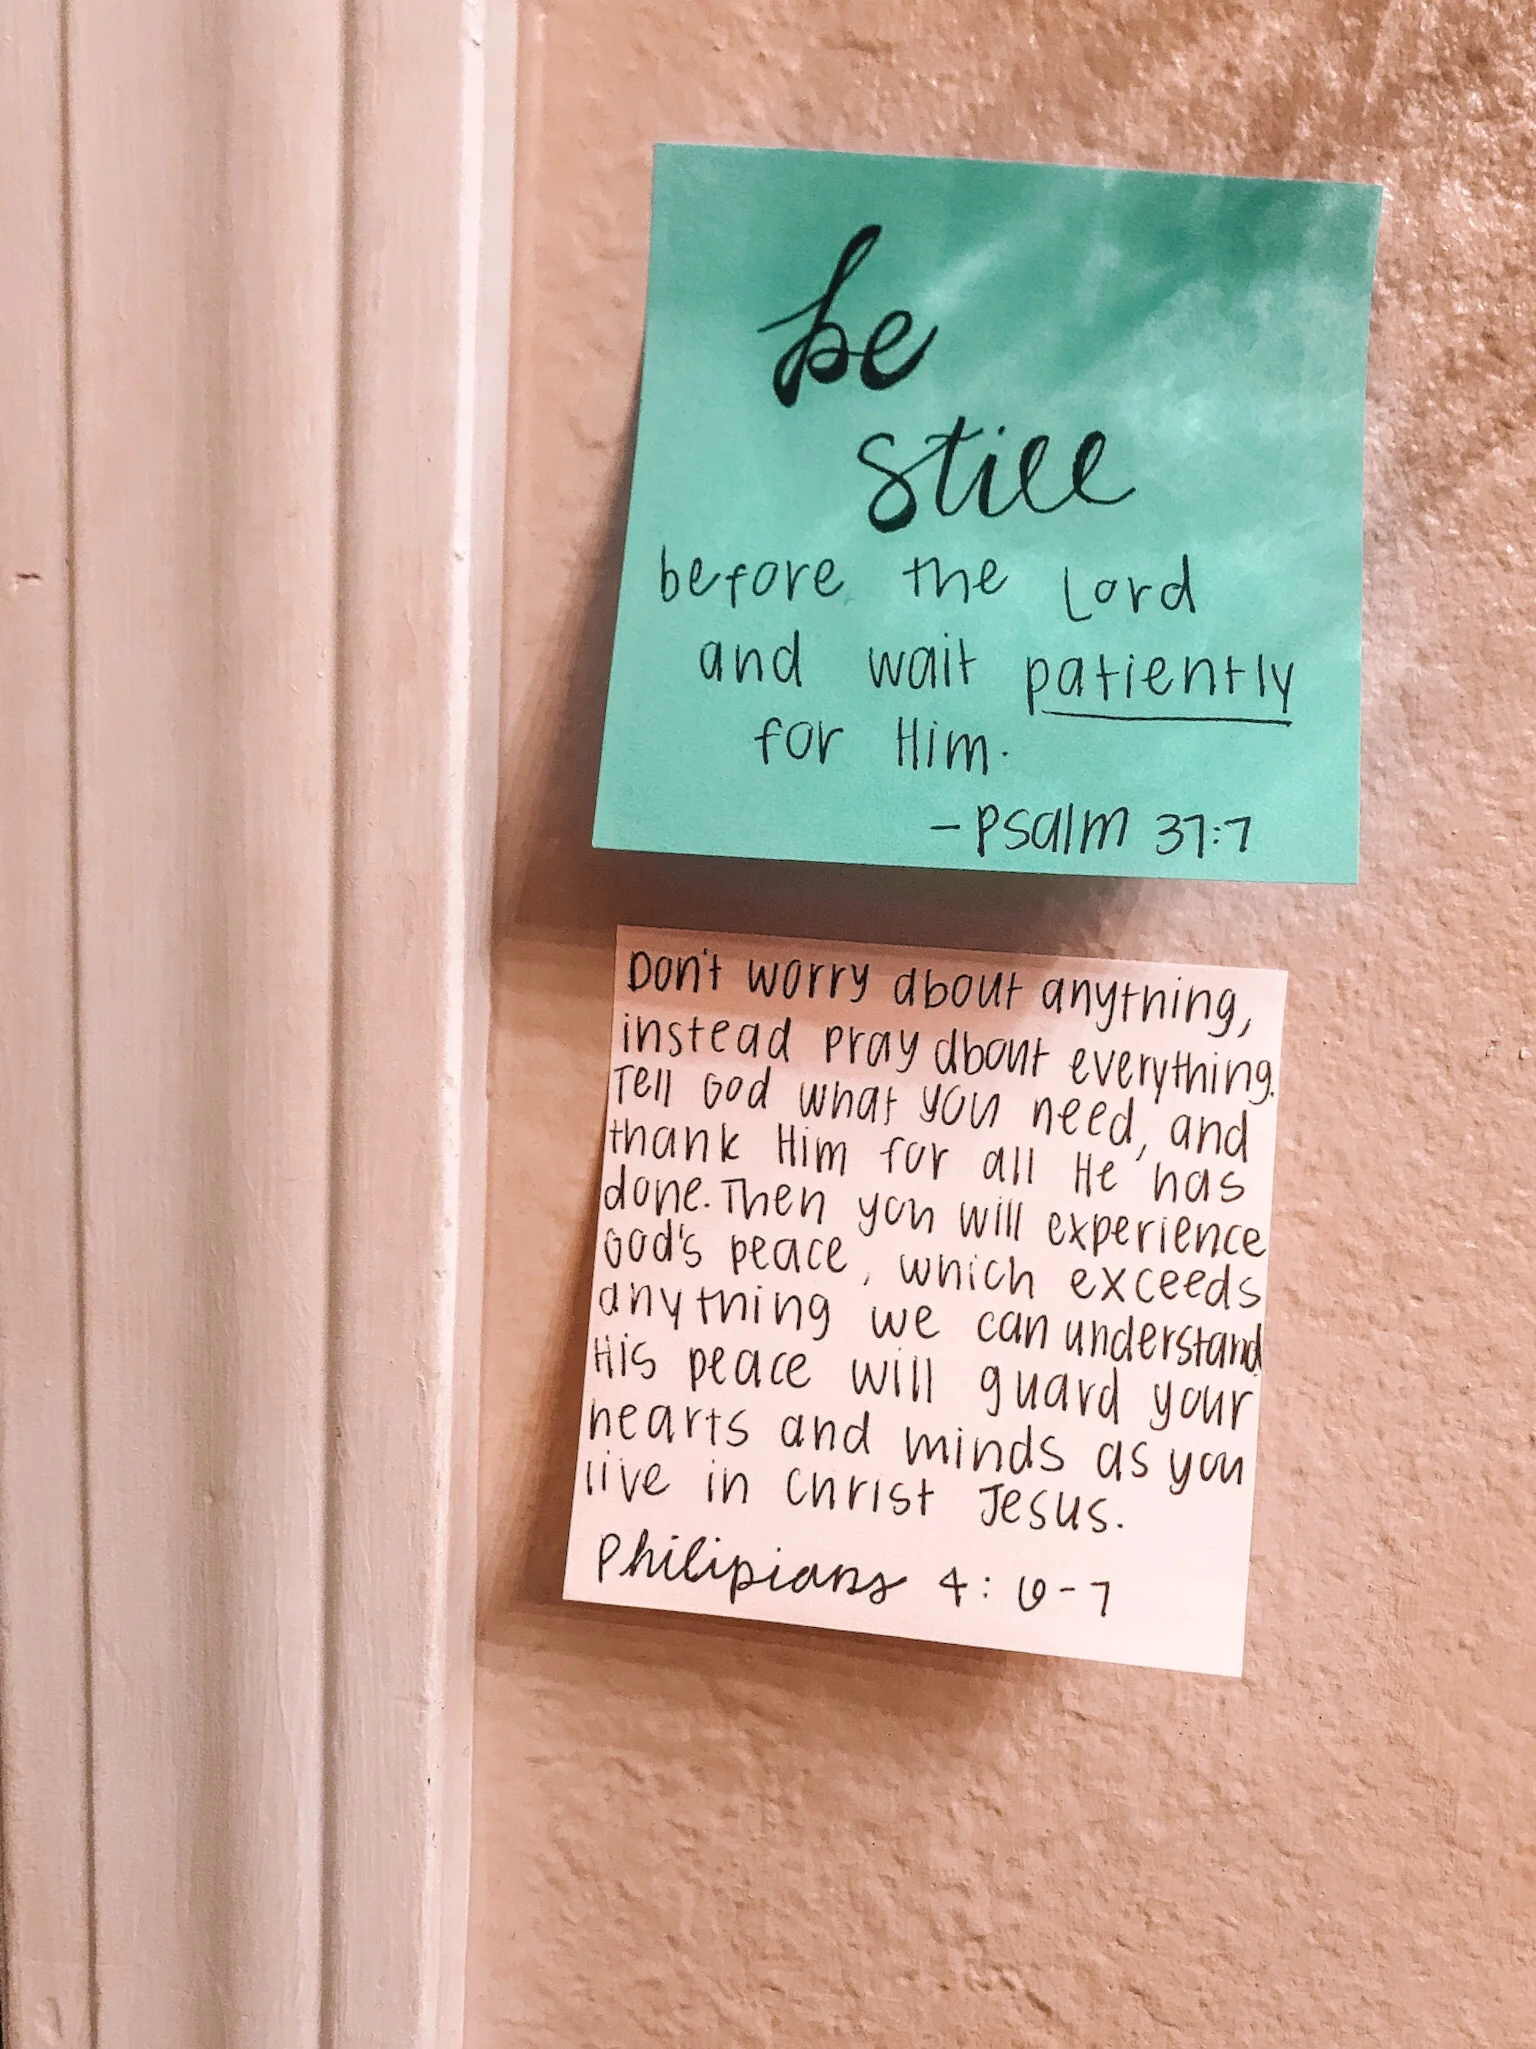 be
still
before the Lord
and wait patiently
for Him.
- Psalm 37:7
Don't worry about anything,
instead pray about everything.
Tell God what you need, and
thank Him for all He has
done. Then you will experience
God's peace, which exceeds
anything we can understand.
His peace will guard your
hearts and minds as you
live in Christ Jesus.
Philipians 4:6-7